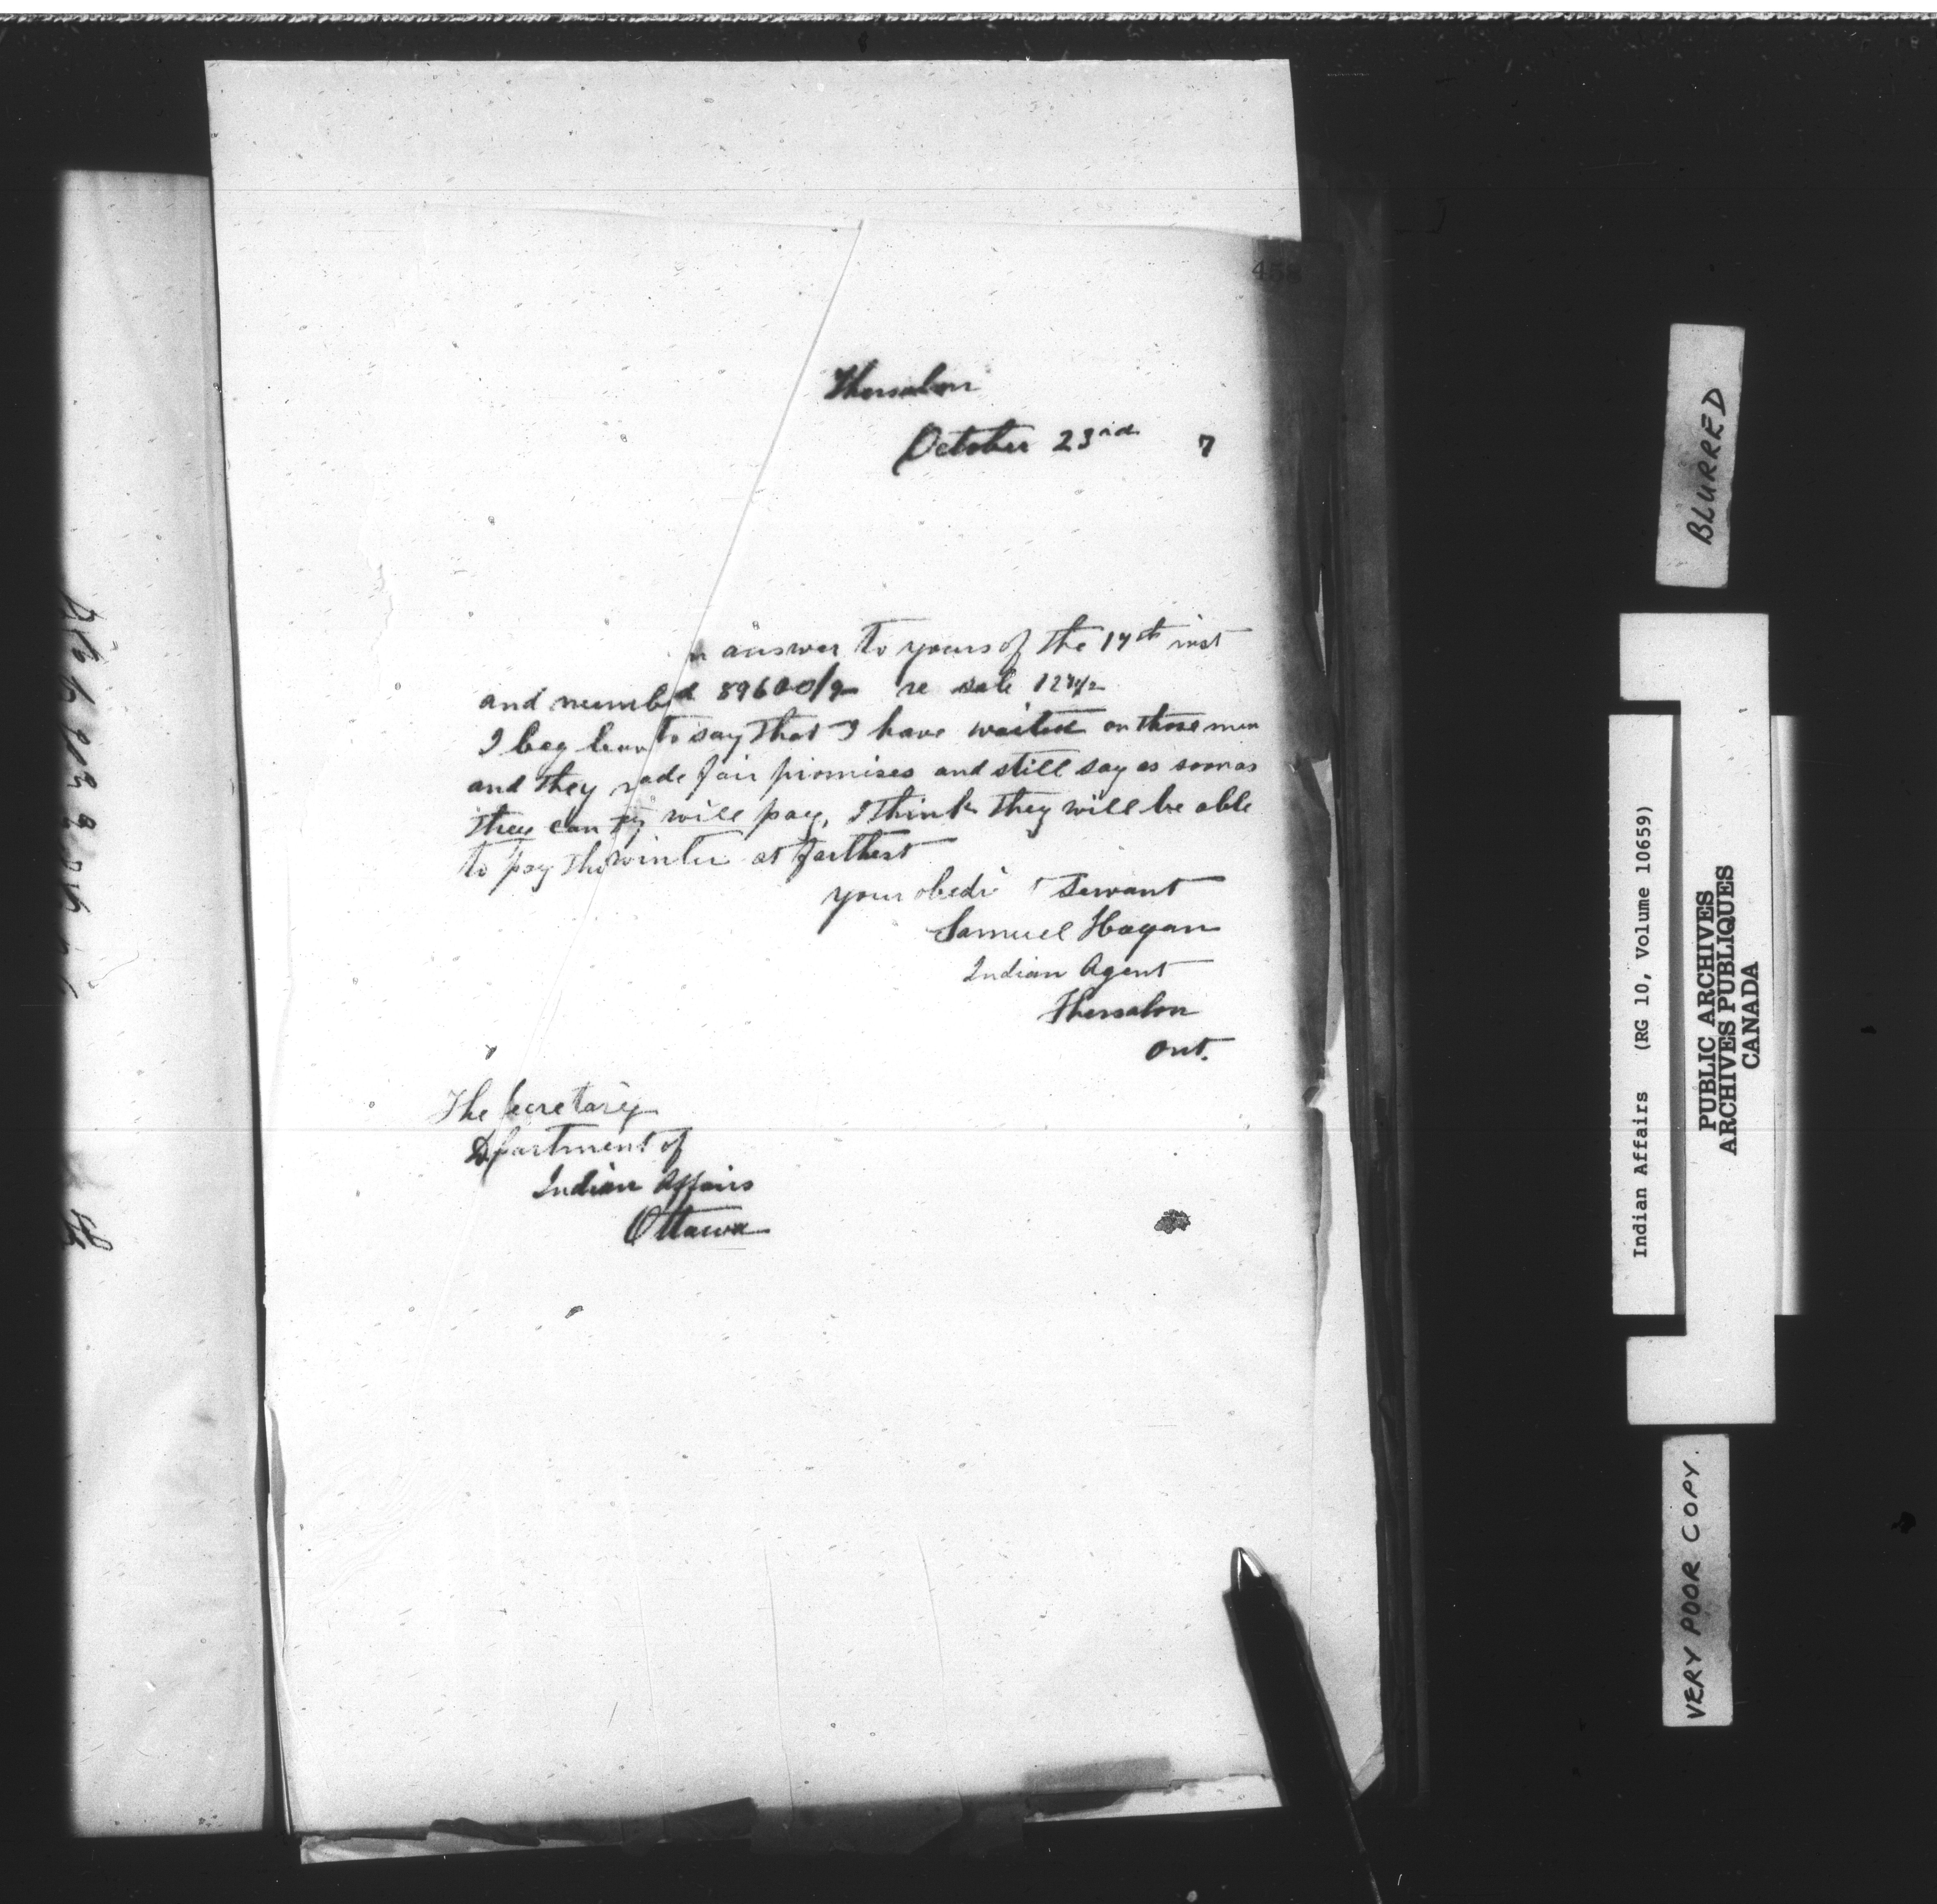 Thessalon
October 23rd 7
n answer to yours of the 17th inst
and numbed 89600/9 re sale
I beg leav to say that I have waited on those men
and they made fair promises and still say as soon as
they can they will pay, I think they will be able
to pay this winter at farthest
your obedi t Servant
Samuel Hagan
Indian Agent
Thessalon
Ont.
The Secretary
Department of
Indian Affairs
Ottawa
BLURRED
Indian Affairs (RG 10, Volume 10659)
PUBLIC ARCHIVES
ARCHIVES PUBLIQUES
CANADA
VERY POOR COPY